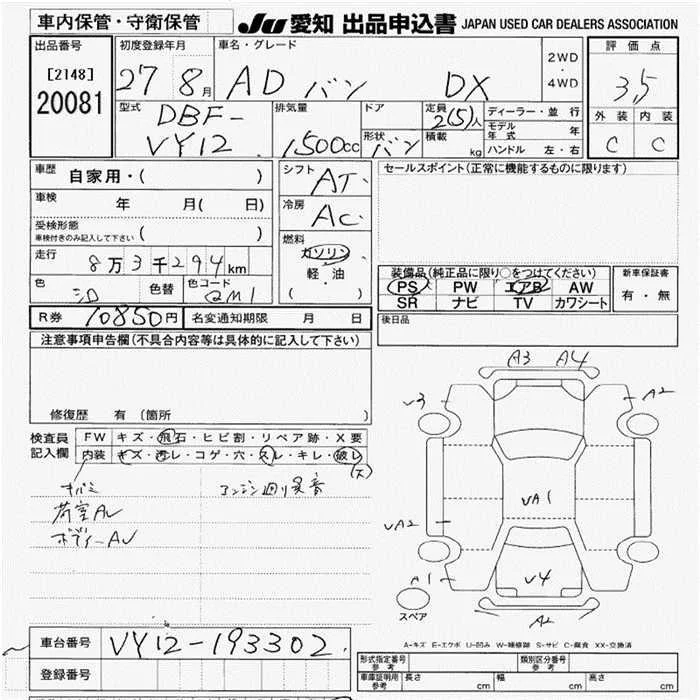 車内保管・守衛保管
JU 愛知 出品申込書 JAPAN USED CAR DEALERS ASSOCIATION
出品番号
[2148]
20081
初度登録年月
27 8月
車名・グレード
AD バン DX
2WD
・
4WD
評価点
3,5
外装 内装
C C
型式
DBF-
VY12
排気量
1500cc
ドア
形状
バン
定員
2(5)人
積載
kg
ディーラー・並行
モデル年式 年
ハンドル 左・右
車歴
自家用・( )
車検
年 月( 日)
受検形態
車検付きのみ記入して下さい ( )
走行
8万3千294km
色
シロ
色替
色コード
QM1
シフト
AT
冷房
AC
燃料
ガソリン
軽・油
( )
セールスポイント(正常に機能するものに限ります)
装備品(純正品に限り○をつけてください)
PS PW エアB AW
SR ナビ TV カワシート
新車保証書
有・無
R券 10850円 名変通知期限 月 日
後日品
注意事項申告欄(不具合内容等は具体的に記入して下さい)
修復歴 有(箇所 )
検査員
記入欄
FW キズ・飛石・ヒビ割・リペア跡・X要
内装 キズ・汚レ・コゲ・穴・スレ・キレ・破レ
(大)
キバミ
荷室AU
ボディーAU
エンジン廻り異音
A3 A4
V3
A2
VA1
VA2
A1
V4
A2
スペア
A-キズ E-エクボ U-凹み W-補修跡 S-サビ C-腐食 XX-交換済
車台番号 VY12-193302
登録番号
形式指定番号
参考
類別区分番号
参考
車庫証明用
参考
長さ cm 幅 cm 高さ cm